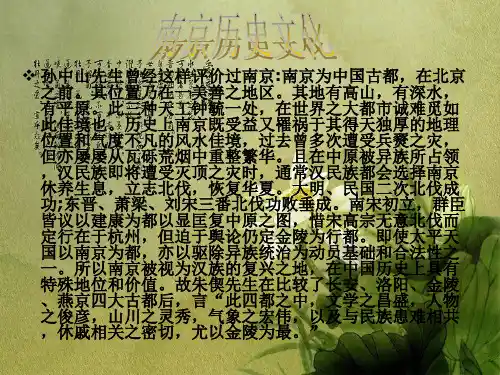 南京历史文化
孙中山先生曾经这样评价过南京:南京为中国古都，在北京
之前。其位置乃在一美善之地区。其地有高山，有深水，
有平原。此三种天工钟毓一处，在世界之大都市诚难觅如
此佳境也。历史上南京既受益又罹祸于其得天独厚的地理
位置和气度不凡的风水佳境，过去曾多次遭受兵燹之灾，
但亦屡屡从瓦砾荒烟中重整繁华。且在中原被异族所占领
汉民族即将遭受灭顶之灾时，通常汉民族都会选择南京
休养生息，立志北伐，恢复华夏。大明、民国二次北伐成
功;东晋、萧梁、刘宋三番北伐功败垂成。南宋初立，群臣
皆议以建康为都以显匡复中原之图，惜宋高宗无意北伐而
定行在于杭州，但迫于舆论仍定金陵为行都。即使太平天
国以南京为都，亦以驱除异族统治为动员基础和合法性之
一。所以南京被视为汉族的复兴之地，在中国历史上具有
特殊地位和价值。故朱偰先生在比较了长安、洛阳、金陵
、燕京四大古都后，言“此四都之中，文学之昌盛，人物
之俊彦，山川之灵秀，气象之宏伟，以及与民族患难相共
，休戚相关之密切，尤以金陵为最。”